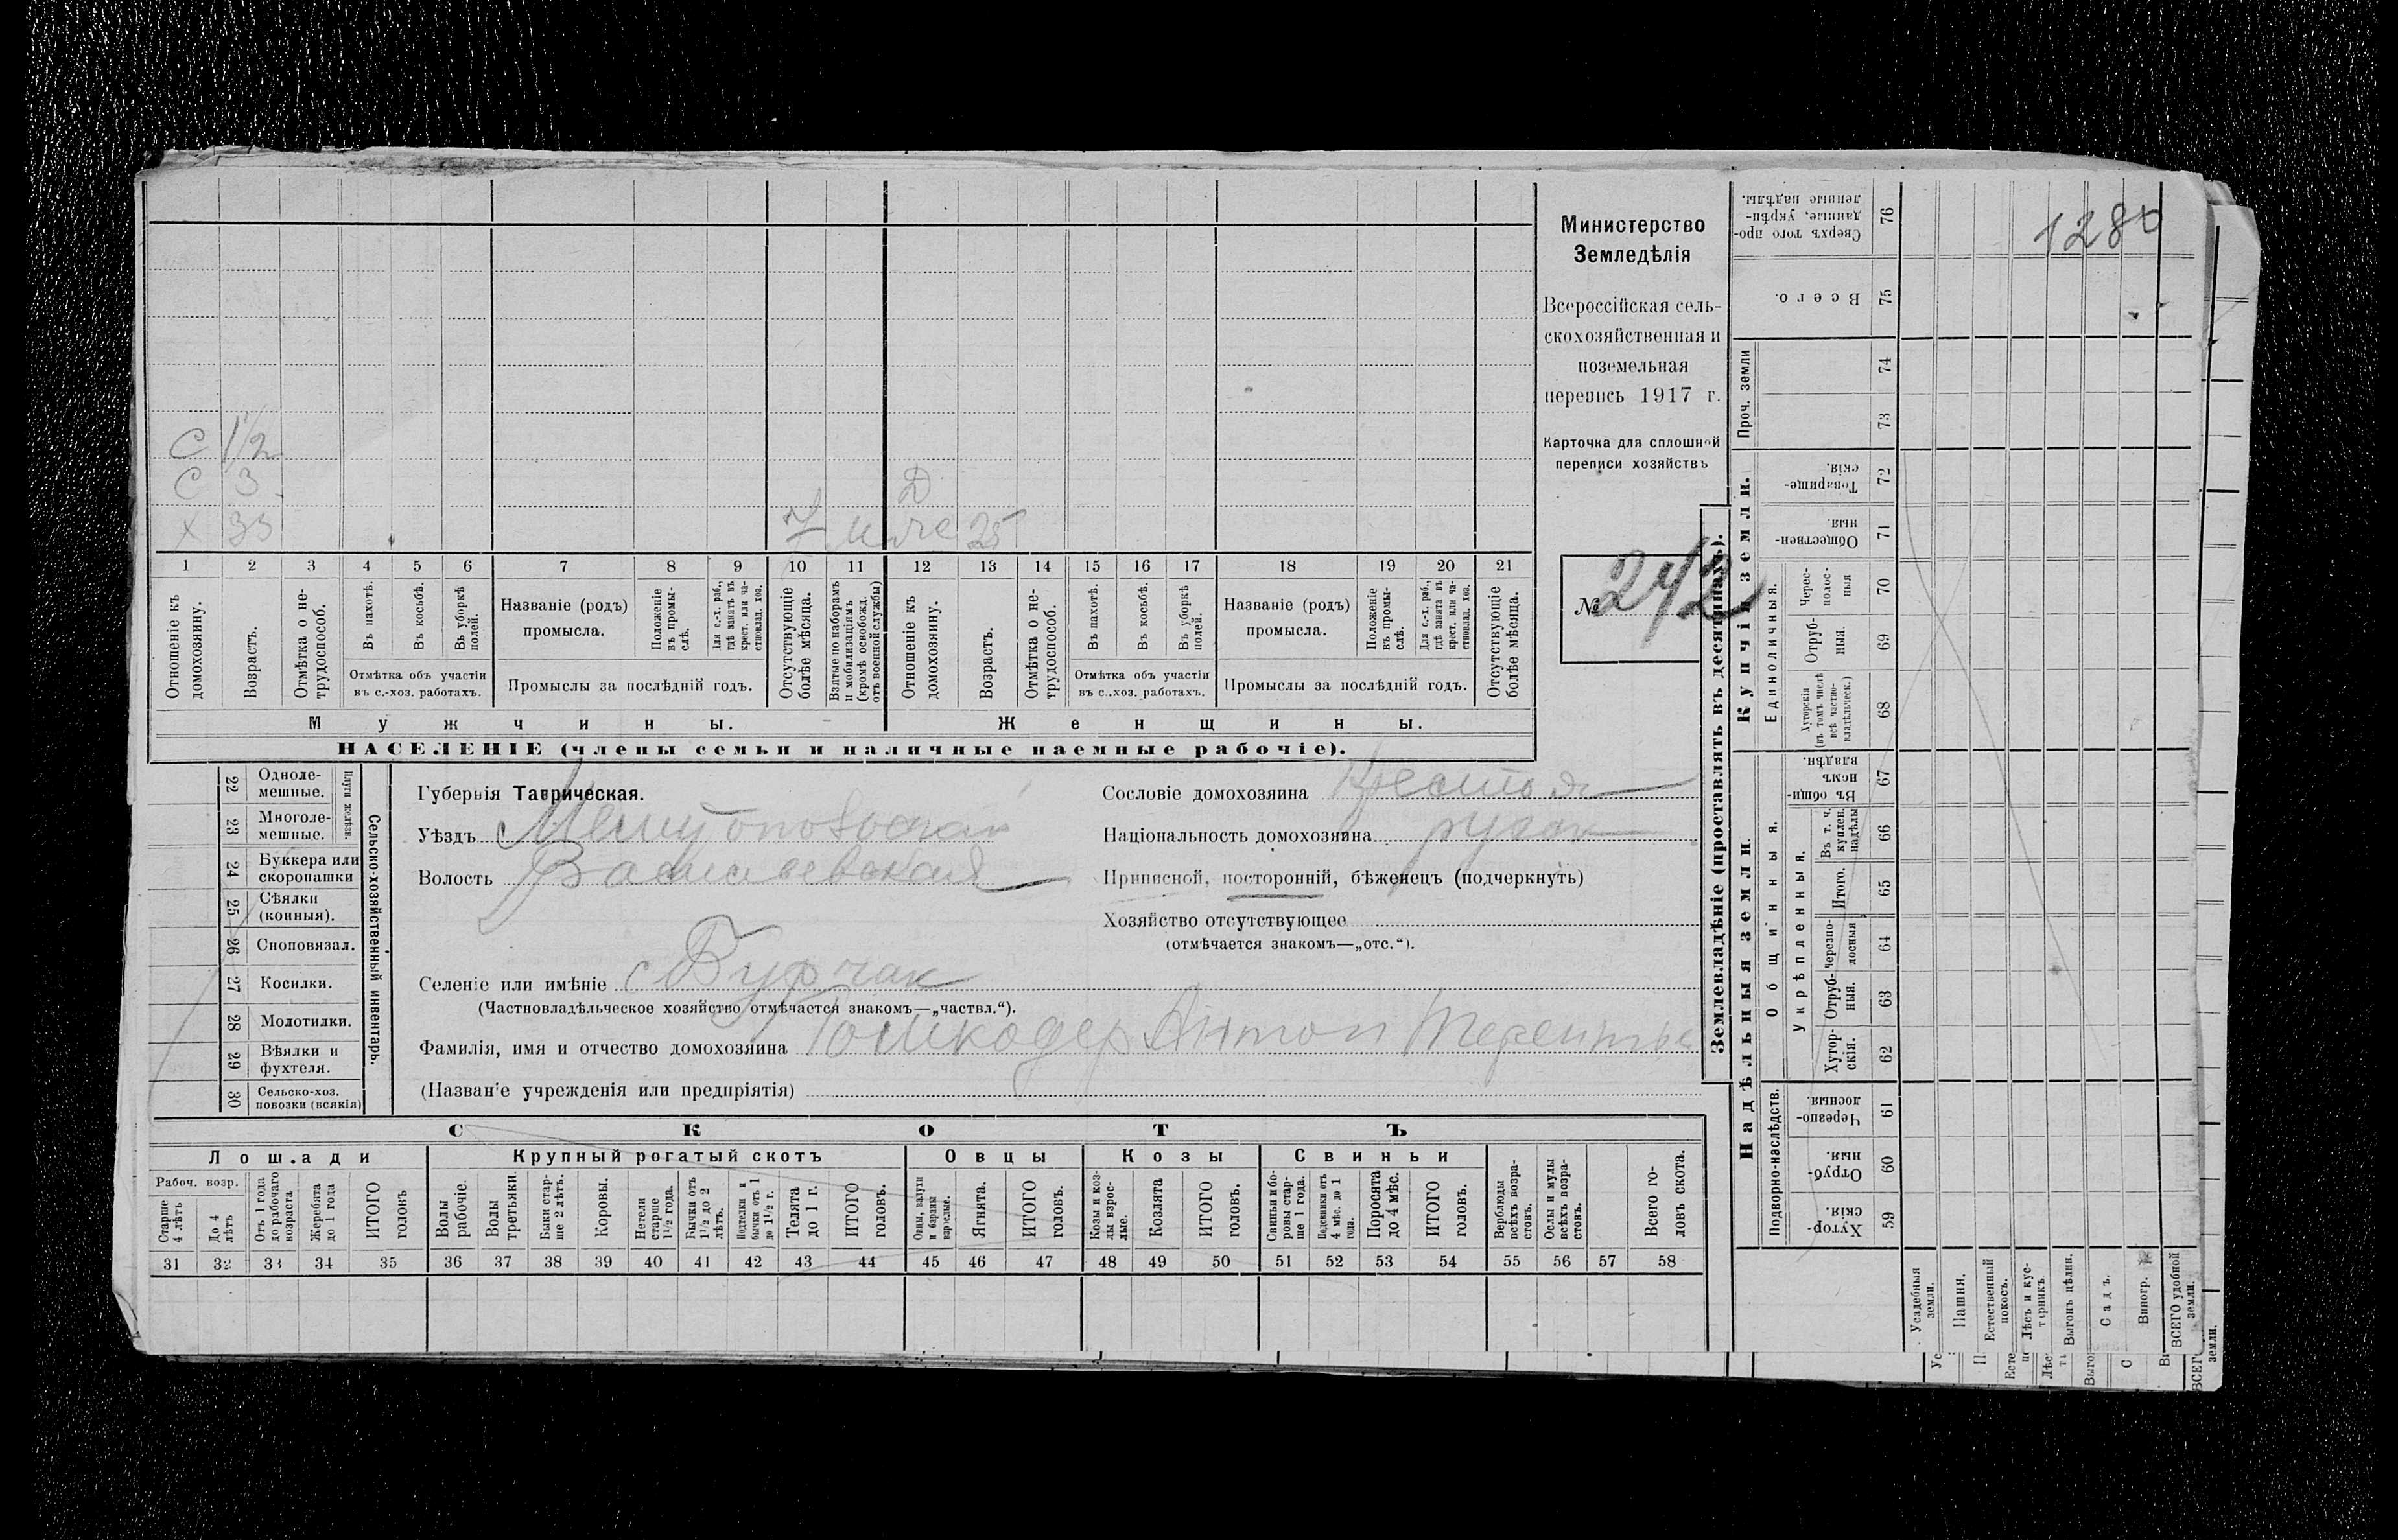 1280
Министерство
Земледѣлія
Всероссійская сель-
скохозяйственная и
поземельная
перепись 1917 г.
Карточка для сплошной
переписи хозяйствъ
№ 242
С 1½
С 3
Х 33
Д
25
1 2 3 4 5 6 7 8 9 10 11 12 13 14 15 16 17 18 19 20 21
Отношеніе къ домохозяину.
Возрастъ.
Отмѣтка о не-трудоспособ.
Въ пахотѣ.
Въ косьбѣ.
Въ уборкѣ полей.
Отмѣтка объ участіи
въ с.-хоз. работахъ.
Названіе (родъ)
промысла.
Положеніе въ промы-слѣ.
Для с.-х. раб., гдѣ занятъ въ крест. или ча-стновлад. хоз.
Промыслы за послѣдній годъ.
Отсутствующіе болѣе мѣсяца.
Взятые по наборамъ и мобилизаціямъ (кромѣ освобожд. отъ военной службы)
Отношеніе къ домохозяину.
Возрастъ.
Отмѣтка о не-трудоспособ.
Въ пахотѣ.
Въ косьбѣ.
Въ уборкѣ полей.
Отмѣтка объ участіи
въ с.-хоз. работахъ.
Названіе (родъ)
промысла.
Положеніе въ промы-слѣ.
Для с.-х. раб., гдѣ занята въ крест. или ча-стновлад. хоз.
Промыслы за послѣдній годъ.
Отсутствующіе болѣе мѣсяца.
Мужчины.
Женщины.
НАСЕЛЕНІЕ (члены семьи и наличные наемные рабочіе).
22 Одноле-мешные.
23 Многоле-мешные.
Плуги желѣзн.
24 Буккера или скоропашки
25 Сѣялки (конныя).
26 Сноповязал.
27 Косилки.
28 Молотилки.
29 Вѣялки и фухтеля.
30 Сельско-хоз. повозки (всякія)
Сельско-хозяйственный инвентарь.
Губернія Таврическая.
Уѣздъ Мелитопольская
Волость Васильевская
Селеніе или имѣніе с Бурчак
(Частновладѣльческое хозяйство отмѣчается знакомъ—„частвл.“).
Фамилія, имя и отчество домохозяина Антон Терентье
(Названіе учрежденія или предпріятія)
Сословіе домохозяина Крестья
Національность домохозяина русск
Приписной, посторонній, бѣженецъ (подчеркнуть)
Хозяйство отсутствующее
(отмѣчается знакомъ—„отс.“).
СКОТЪ
Лошади
Крупный рогатый скотъ
Овцы
Козы
Свиньи
Рабоч. возр.
Старше 4 лѣтъ
До 4 лѣтъ
Отъ 1 года до рабочаго возраста
Жеребята до 1 года
ИТОГО головъ
Волы рабочіе.
Волы третьяки.
Быки стар-ше 2 лѣтъ.
Коровы.
Нетели старше 1½ года.
Бычки отъ 1½ до 2 лѣтъ.
Подтелки и бычки отъ 1 до 1½ г.
Телята до 1 г.
ИТОГО головъ.
Овцы, валухи и бараны взрослые.
Ягнята.
ИТОГО головъ.
Козы и коз-лы взрос-лые.
Козлята
ИТОГО головъ.
Свиньи и бо-ровы стар-ше 1 года.
Подсвинки отъ 4 мѣс. до 1 года.
Поросята до 4 мѣс.
ИТОГО головъ.
Верблюды всѣхъ возра-стовъ.
Ослы и мулы всѣхъ возра-стовъ.
Всего го-ловъ скота.
31 32 33 34 35 36 37 38 39 40 41 42 43 44 45 46 47 48 49 50 51 52 53 54 55 56 57 58
Землевладѣніе (проставлять въ десятинахъ).
Надѣльныя земли.
Купчія земли.
Проч. земли
Подворно-наслѣдств.
Общинныя.
Укрѣпленныя.
Единоличныя.
Хутор-скія. 59
Отруб-ныя. 60
Черезпо-лосныя. 61
Хутор-скія. 62
Отруб-ныя. 63
Черезпо-лосныя 64
Итого. 65
Въ т. ч. куплен. надѣлы 66
Въ общи-номъ владѣн. 67
Хуторскія (въ томъ числѣ всѣ частно-владѣльческ.) 68
Отруб-ныя. 69
Черес-полос-ныя 70
Обществен-ныя. 71
Товарище-скія. 72
73
74
Всего. 75
Сверхъ того про-данные, укрѣп-ленные надѣлы. 76
Усадебныя земли.
Пашня.
Естественный покосъ.
Лѣсъ и кус-тарникъ.
Выгонъ цѣлин.
Садъ.
Виногр.
ВСЕГО удобной земли.